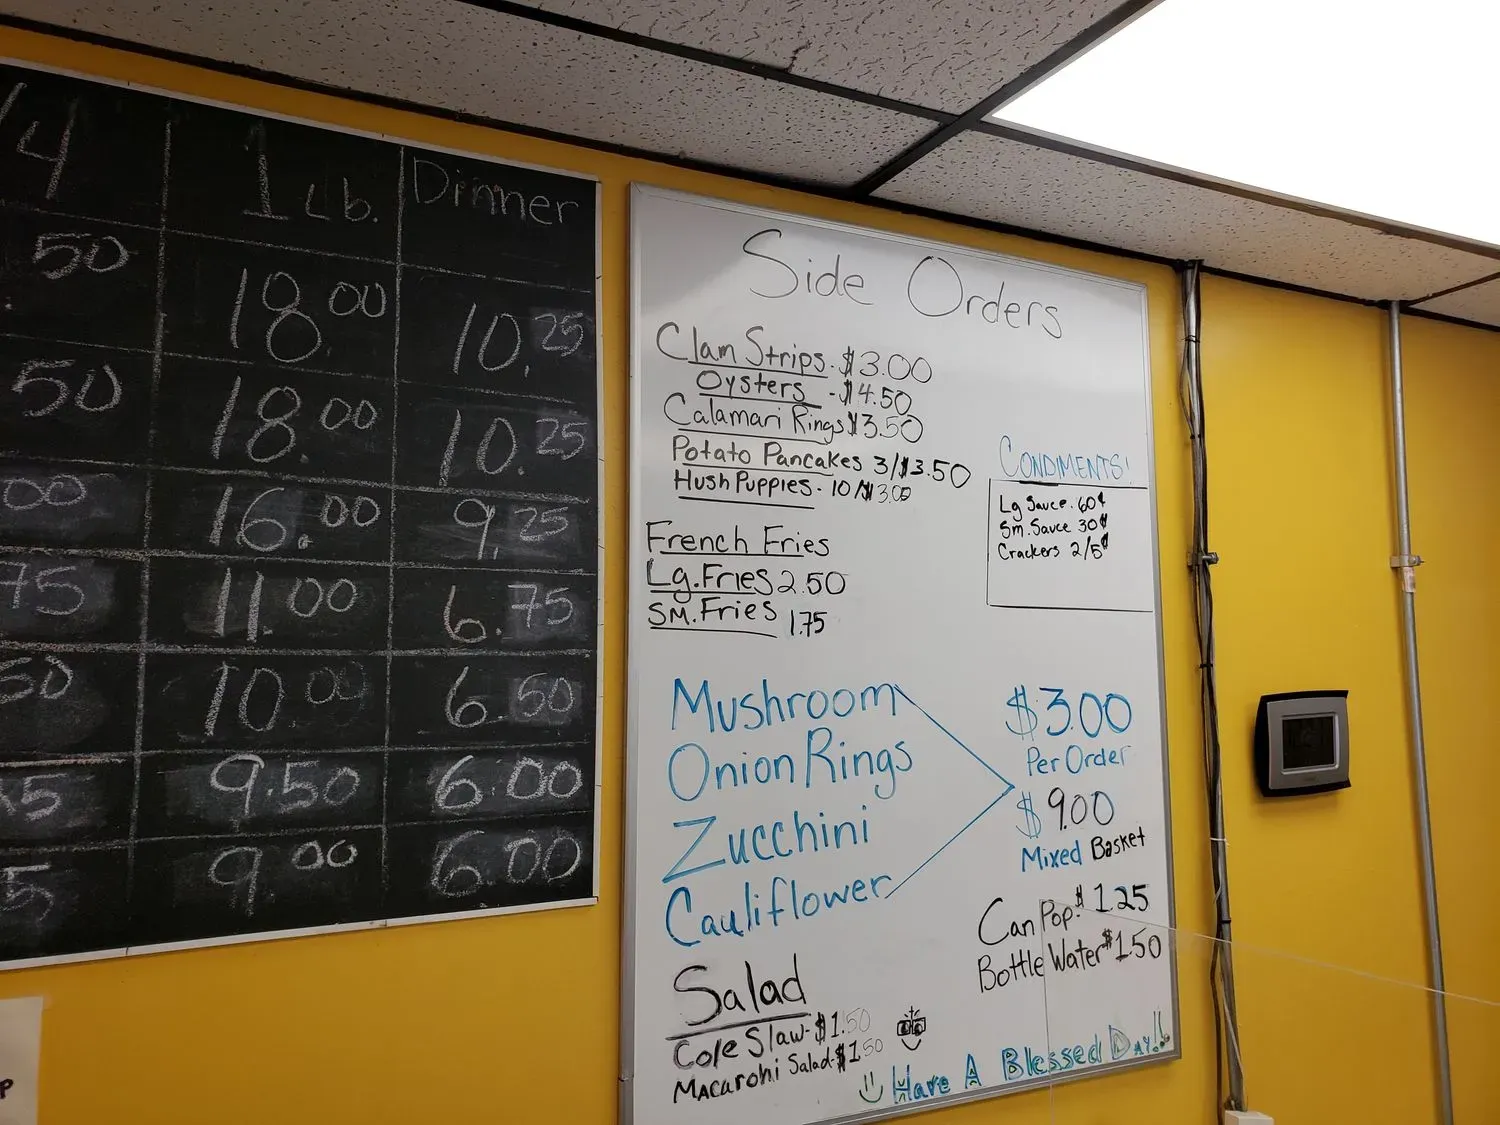 /4 1 Lb. Dinner
50 18.00 10.25
50 18.00 10.25
00 16.00 9.25
75 11.00 6.75
50 10.00 6.50
5 9.50 6.00
5 9.00 6.00
Side Orders
Clam Strips - $3.00
Oysters - $4.50
Calamari Rings $3.50
Potato Pancakes 3/$3.50
Hush Puppies - 10/$3.00
French Fries
Lg. Fries 2.50
SM. Fries 1.75
CONDIMENTS!
Lg Sauce . 60¢
Sm. Sauce 30¢
Crackers 2/5¢
Mushroom
Onion Rings
Zucchini
Cauliflower
$3.00
Per Order
$9.00
Mixed Basket
Can Pop $1.25
Bottle Water $1.50
Salad
Cole Slaw - $1.50
Macaroni Salad - $1.50
Have A Blessed Day!!
P